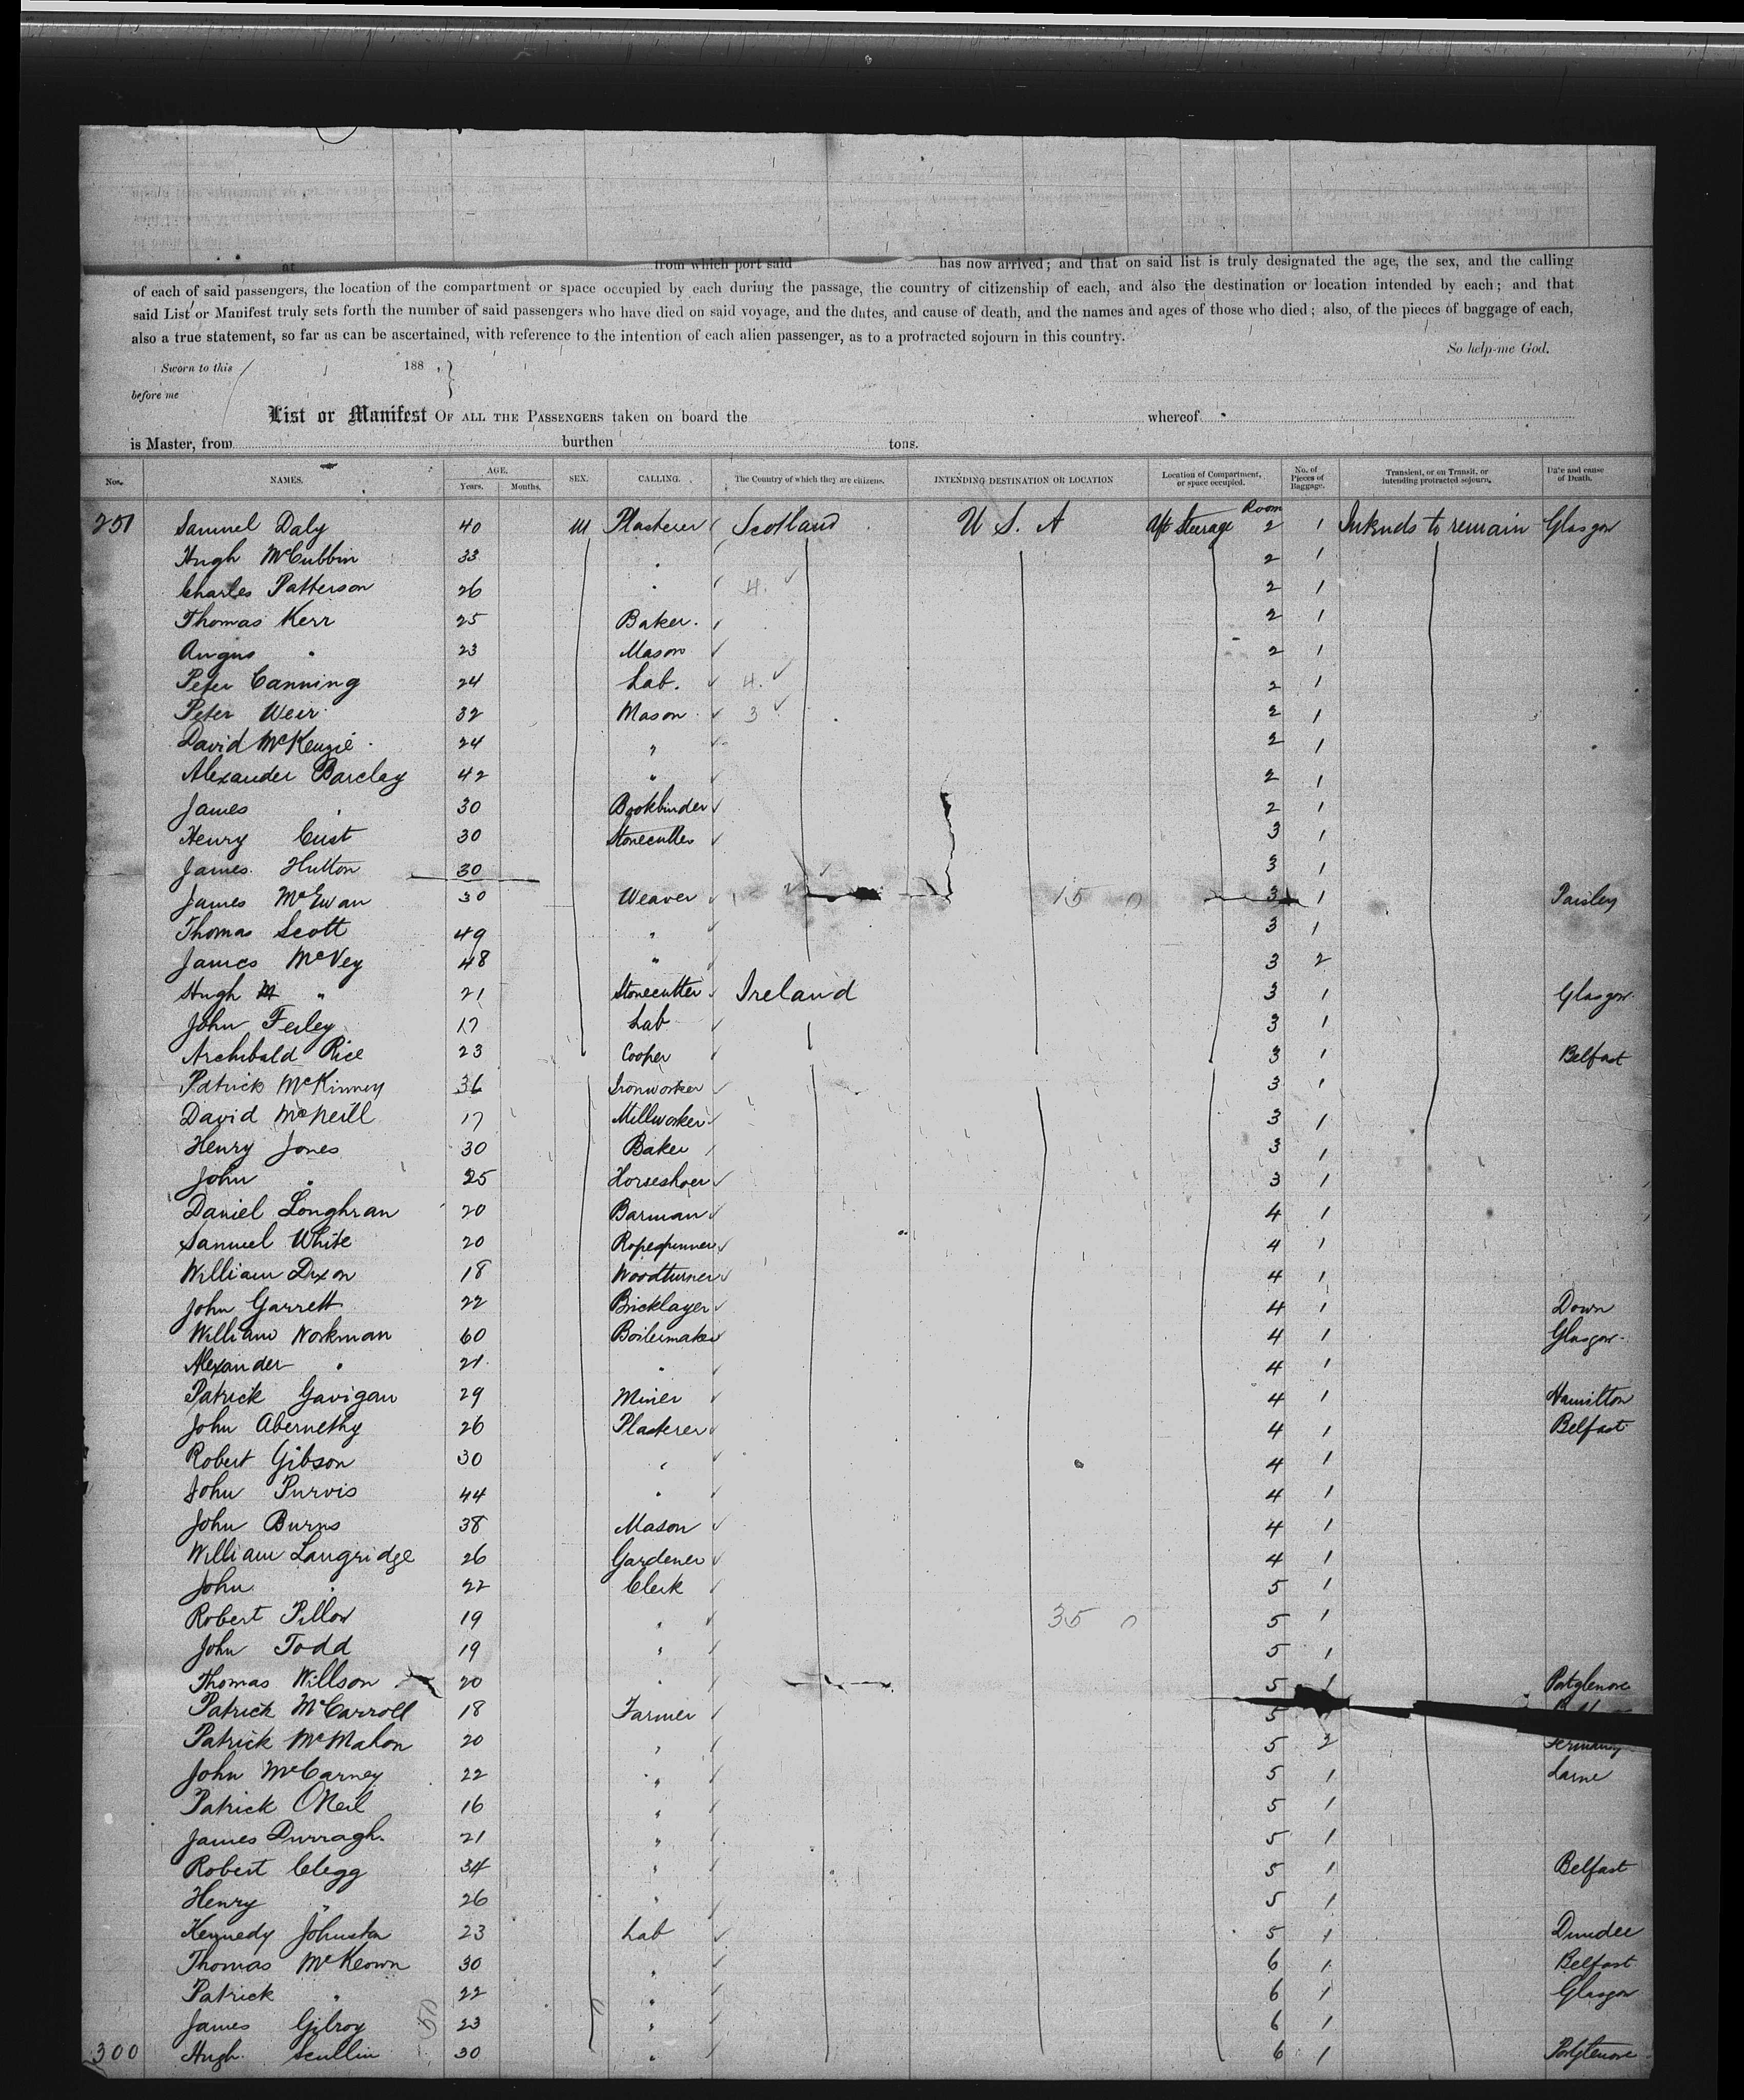 at from which port said has now arrived; and that on said list is truly designated the age, the sex, and the calling
of each of said passengers, the location of the compartment or space occupied by each during the passage, the country of citizenship of each, and also the destination or location intended by each; and that
said List or Manifest truly sets forth the number of said passengers who have died on said voyage, and the dates, and cause of death, and the names and ages of those who died; also, of the pieces of baggage of each,
also a true statement, so far as can be ascertained, with reference to the intention of each alien passenger, as to a protracted sojourn in this country.
So help me God.
Sworn to this 188 ,
before me
List or Manifest OF ALL THE PASSENGERS taken on board the whereof
is Master, from burthen tons.
Nos. NAMES. AGE. Years. Months. SEX. CALLING. The Country of which they are citizens. INTENDING DESTINATION OR LOCATION Location of Compartment, or space occupied. No. of Pieces of Baggage. Transient, or on Transit, or intending protracted sojourn. Date and cause of Death.
251 Samuel Daly 40 M Plasterer Scotland U S. A Aft Steerage Room 2 1 Intends to remain Glasgow
Hugh McCubbin 33 " 2 1
Charles Patterson 26 " 4. 2 1
Thomas Kerr 25 Baker. 2 1
Angus " 23 Mason 2 1
Peter Canning 24 Lab. 4. 2 1
Peter Weir 32 Mason 3 2 1
David McKenzie 24 " 2 1
Alexander Barclay 42 " 2 1
James " 30 Bookbinder 2 1
Henry Cust 30 Stonecutter 3 1
James Hutton 30 3 1
James McEwan 30 Weaver 15 0 3 1 Paisley
Thomas Scott 49 " 3 1
James McVey 48 " 3 2
Hugh " 21 Stonecutter Ireland 3 1 Glasgow
John Ferley 17 Lab 3 1
Archibald Rice 23 Cooper 3 1 Belfast
Patrick McKinney 36 Ironworker 3 1
David McNeill 17 Millworker 3 1
Henry Jones 30 Baker 3 1
John " 25 Horseshoer 3 1
Daniel Loughran 20 Barman 4 1
Samuel White 20 Ropespinner 4 1
William Dixon 18 Woodturner 4 1
John Garrett 22 Bricklayer 4 1 Down
William Workman 60 Boilermaker 4 1 Glasgow
Alexander " 21 " 4 1
Patrick Gavigan 29 Miner 4 1 Hamilton
John Abernethy 26 Plasterer 4 1 Belfast
Robert Gibson 30 " 4 1
John Purvis 44 " 4 1
John Burns 38 Mason 4 1
William Langridge 26 Gardener 4 1
John " 22 Clerk 5 1
Robert Pillow 19 " 35 0 5 1
John Todd 19 " 5 1
Thomas Willson 20 " 5 1 Portglenone
Patrick McCarroll 18 Farmer 5
Patrick McMahon 20 " 5 2
John McCarney 22 " 5 1 Larne
Patrick ONeil 16 " 5 1
James Durragh. 21 " 5 1
Robert Clegg 34 " 5 1 Belfast
Henry " 26 " 5 1
Kennedy Johnston 23 Lab 5 1 Dundee
Thomas McKeown 30 " 6 1 Belfast
Patrick " 22 " 6 1 Glasgow
James Gilroy 50 23 " 6 1
300 Hugh Scullin 30 " 6 1 Portglenone